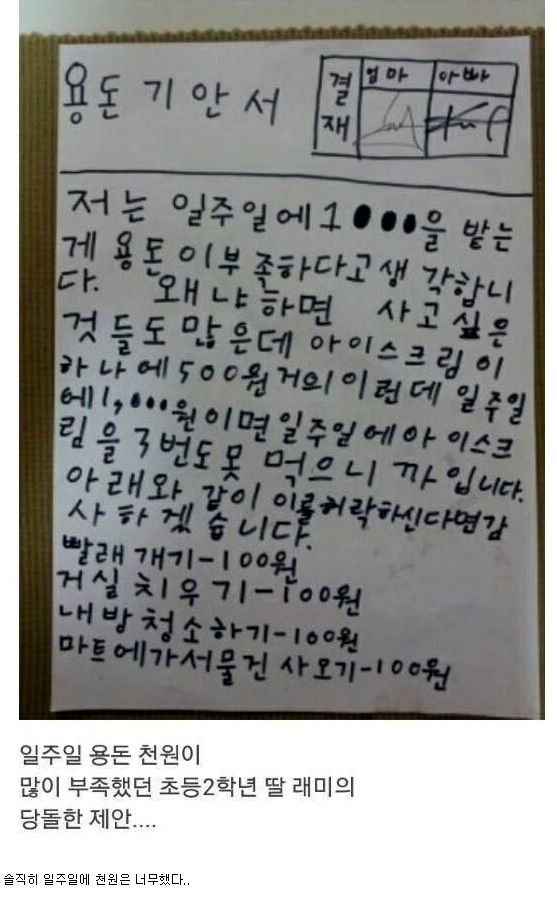 용돈기안서
결재 엄마 아빠
저는 일주일에 1000을 받는
게 용돈이부족하다고생각합니
다. 왜냐하면 사고싶은
것들도많은데아이스크림이
하나에500원거의이런데일주일
에1,000원이면일주일에아이스크
림을3번도못먹으니까입니다.
아래와 같이 이를허락하신다면감
사하겠습니다.
빨래개기-100원
거실치우기-100원
내방청소하기-100원
마트에가서물건사오기-100원
일주일 용돈 천원이
많이 부족했던 초등2학년 딸 래미의
당돌한 제안....
솔직히 일주일에 천원은 너무했다..